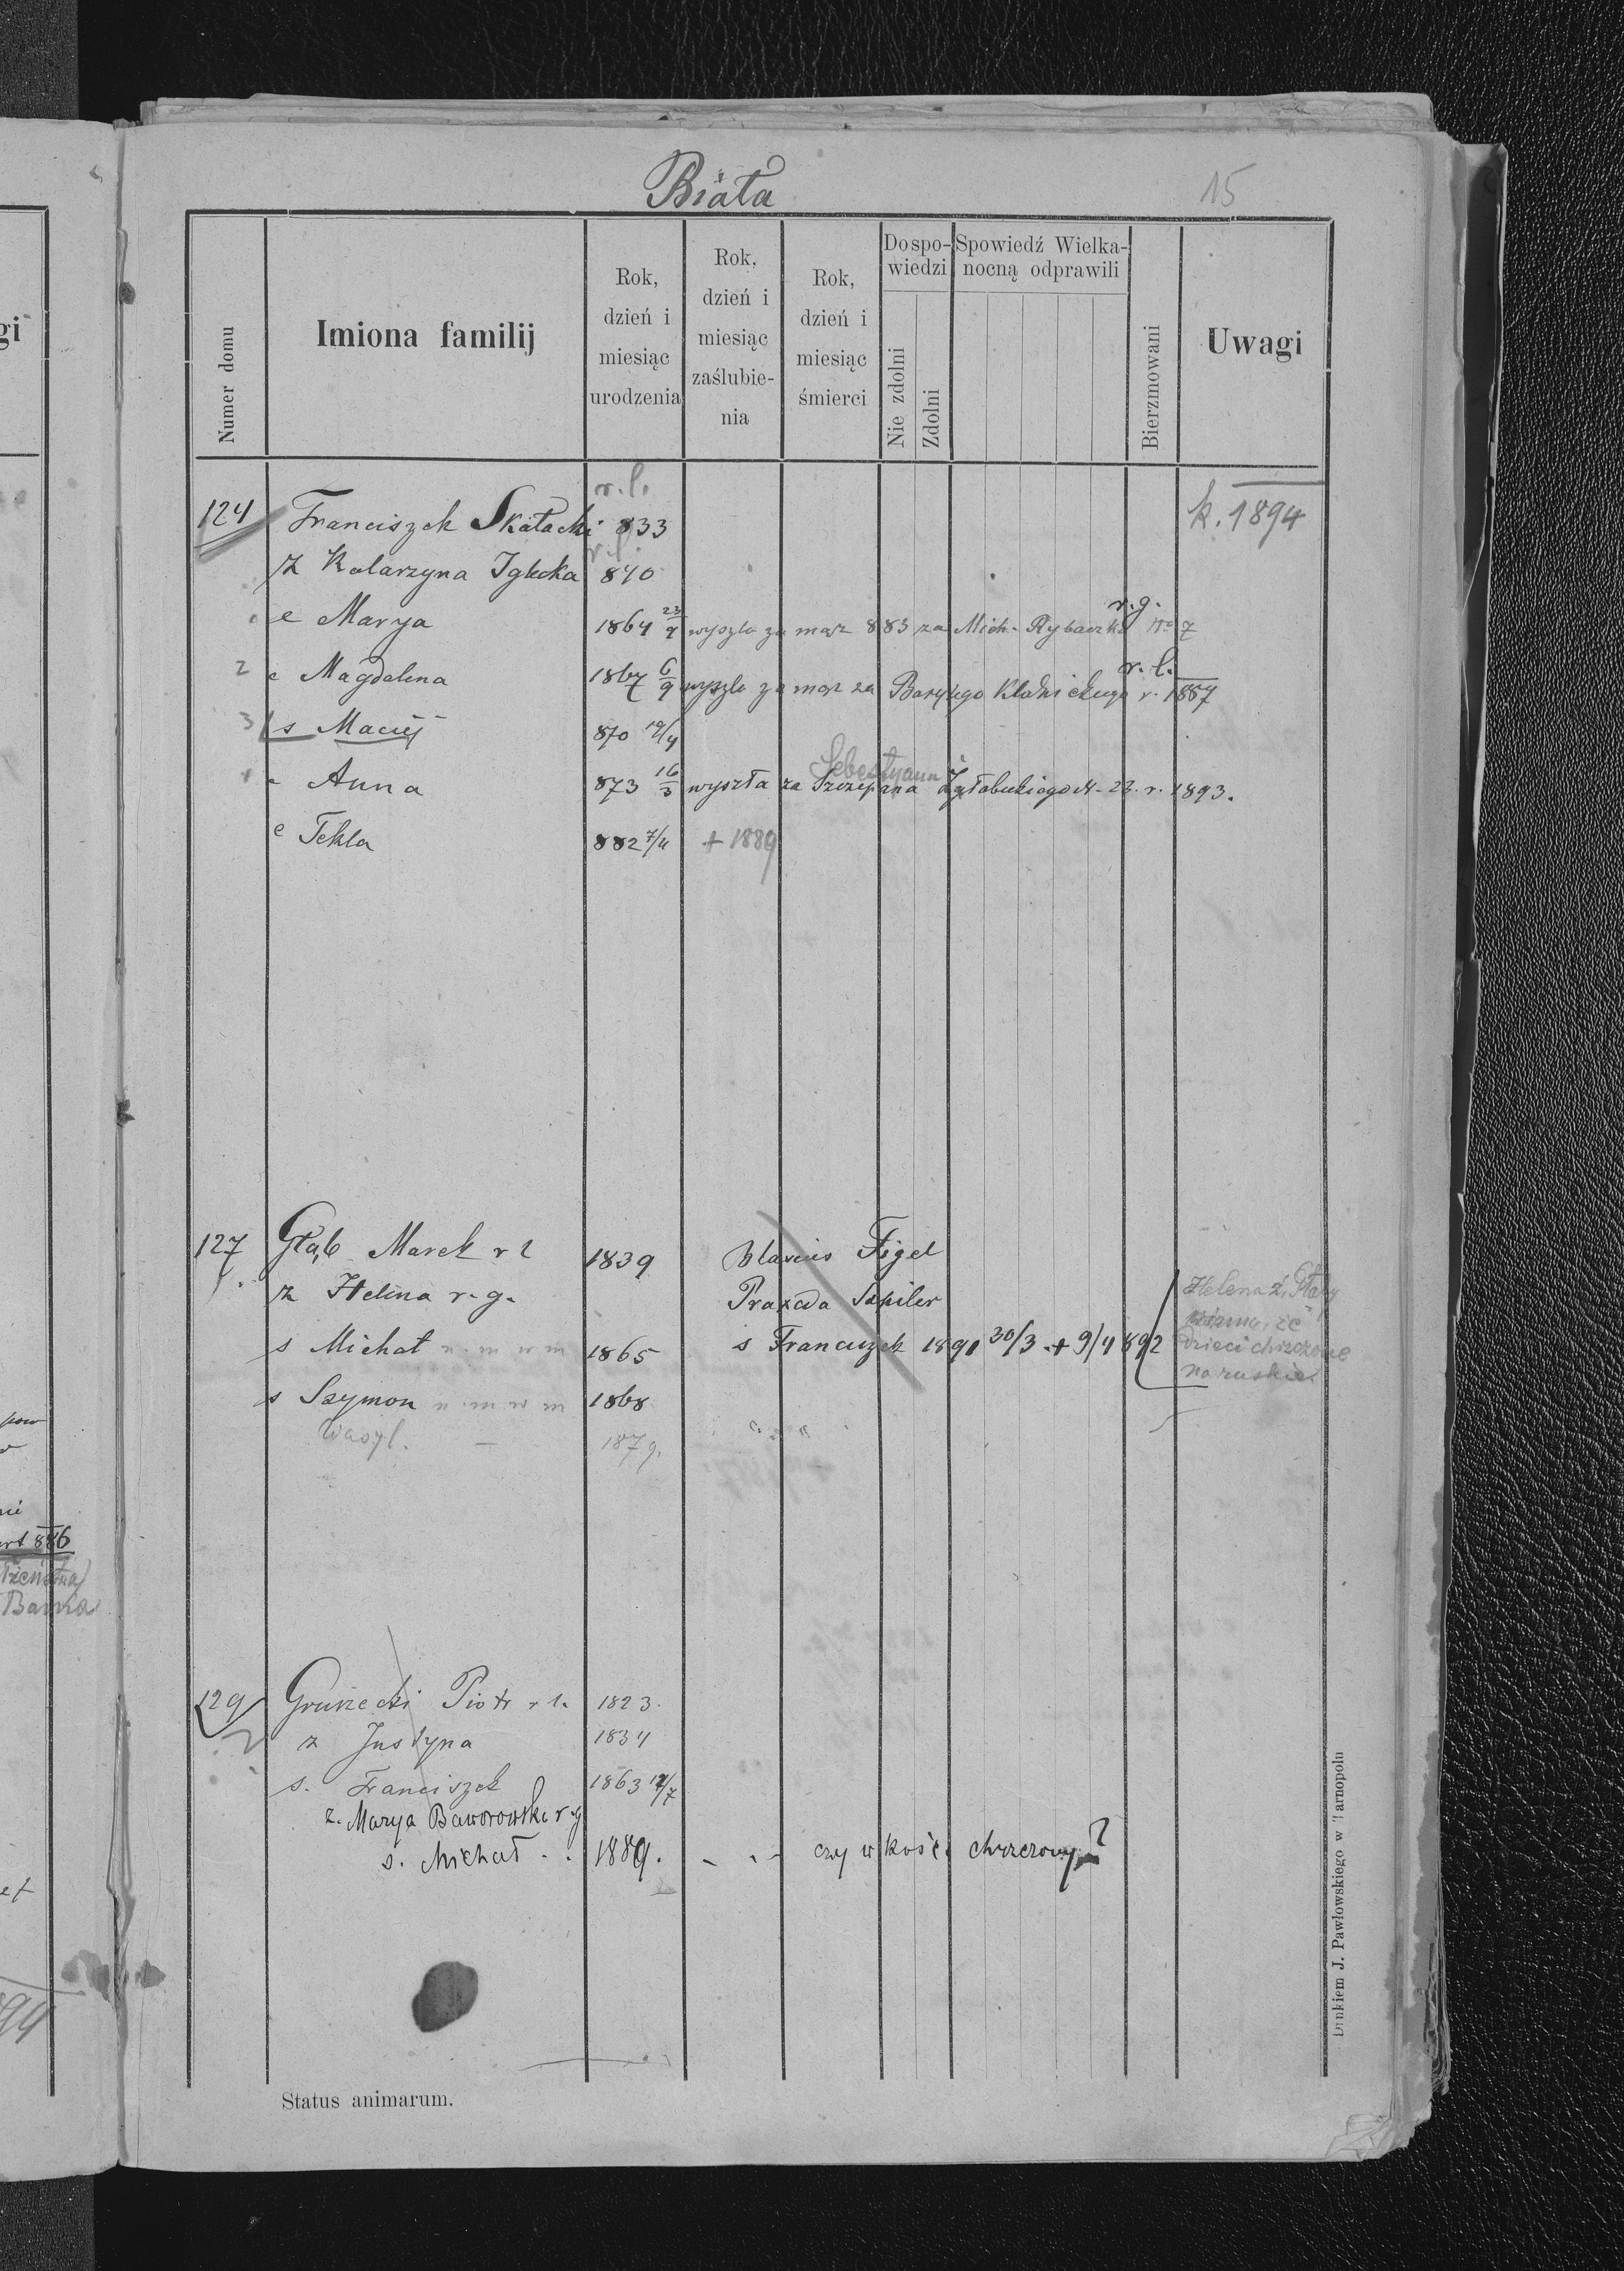 Biała
15
Numer domu
Imiona familij
Rok, dzień i miesiąc urodzenia
Rok, dzień i miesiąc zaślubie-nia
Rok, dzień i miesiąc śmierci
Do spo-wiedzi
Nie zdolni
Zdolni
Spowiedź Wielka-nocną odprawili
Bierzmowani
Uwagi
r. l.
124 Franciszek Skałacki 833 k. 1894
r. l.
z Katarzyna Iglicka 840
r. g.
c Marya 1864 23/7 wyszła za mąż 883 za Mich. Rybaczka No 7
r. l.
2 c Magdalena 1867 6/9 wyszła za mąż za Bazylego r. 1887
3 s Maciej 870 19/4
Sebestyana
c Anna 873 16/3 wyszła za Szczepana N. 23. r. 1893.
c Tekla 882 7/4 + 1889
127 Głąb Marek r l 1839 Blasius Figel
z Helena r. g. Praxeda Szpiler
s Michał n. m w m 1865 s Franciszek 1891 30/3 + 9/4 892
s Szymon n. m w m 1868
Wasyl. — 1879.
Helena ż.
że
Dzieci chrzczone
na ruskie
129 Gruszecki Piotr r l. 1823.
z Justyna 1834
s. Franciszek 1863 12/7
z. Marya Baworowska r g
s. Michał . . 1889. - . - czy w kość. chrzczony?
Status animarum.
Drukiem J. Pawłowskiego w Tarnopolu
gi
886
Barka
94